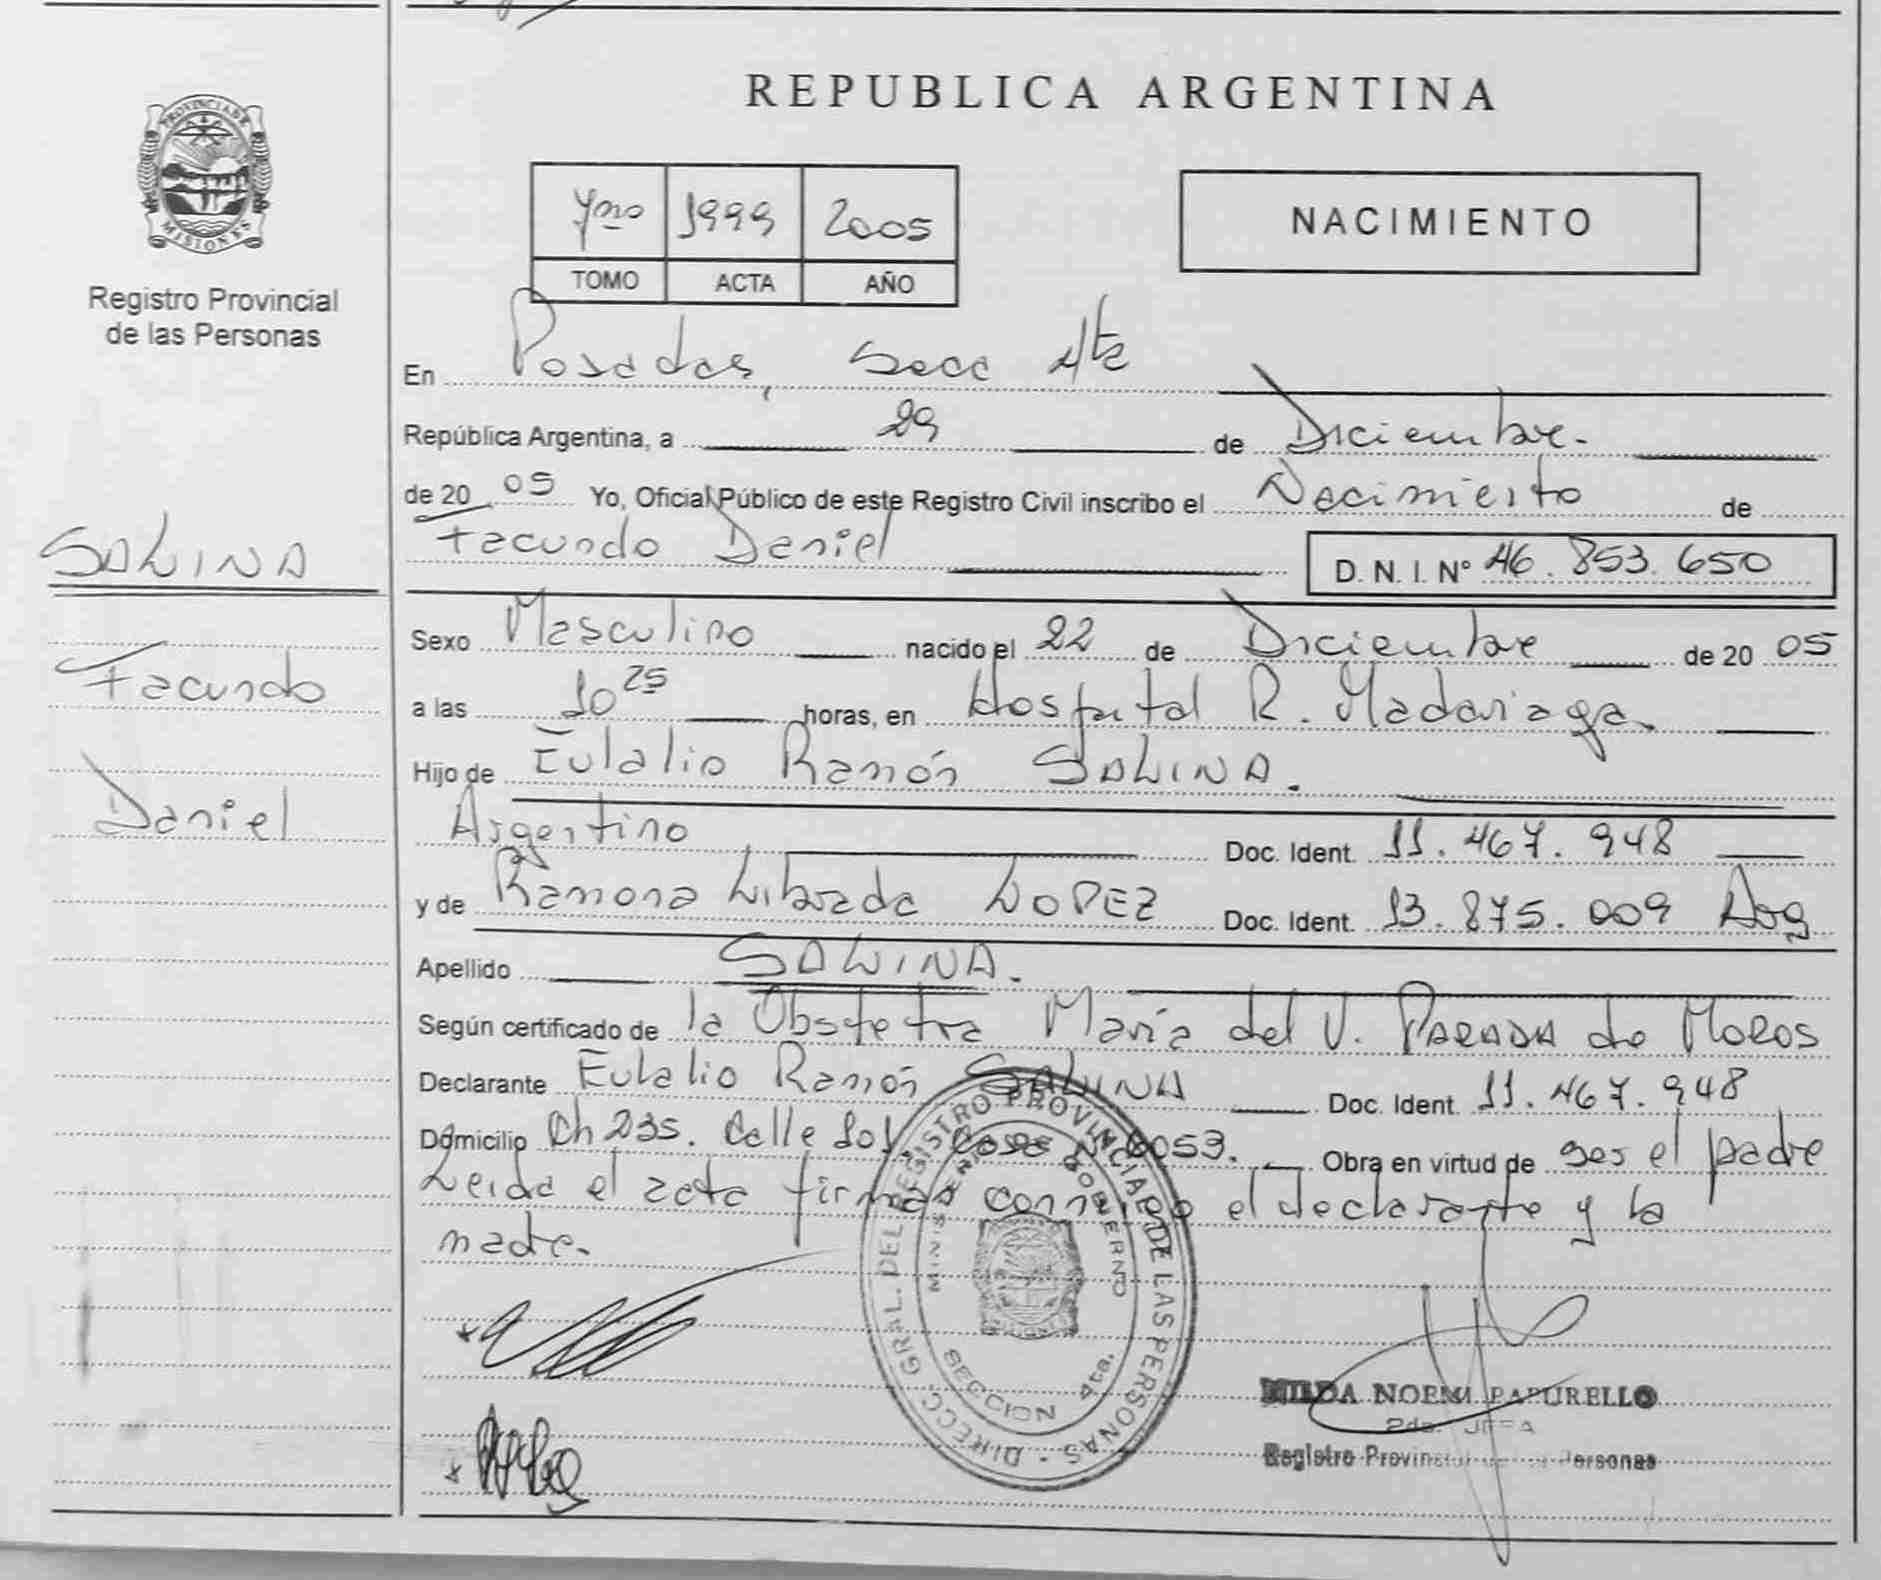 REPUBLICA ARGENTINA
PROVINCIA DE MISIONES
Registro Provincial
de las Personas
1999 2005
TOMO ACTA AÑO
NACIMIENTO
En Posadas, Secc 4ta
República Argentina, a 29 de Diciembre.
de 20 05 Yo, Oficial Público de este Registro Civil inscribo el Nacimiento de
Facundo Daniel D. N. I. Nº 46.853.650
SALINA
Facundo
Daniel
Sexo Masculino nacido el 22 de Diciembre de 20 05
a las 10 25 horas, en Hospital R. Madariaga.
Hijo de Eulalio Ramón SALINA.
Argentino Doc. Ident. 11.467.948
y de Ramona Librada LOPEZ Doc. Ident. 13.875.009 Arg
Apellido SALINA.
Según certificado de la Obstetra María del V. PARADA de MOROS
Declarante Eulalio Ramón SALINA Doc. Ident. 11.467.948
Domicilio Ch 235. Calle 101 Casa Nº 6053. Obra en virtud de ser el padre
Leida el acta firman conmigo el declarante y la
madre.
DIRECC. GRAL. DEL REGISTRO PROVINCIAL DE LAS PERSONAS
MINISTERIO DE GOBIERNO
SECCION 4ta.
NOEMI PAPURELLO
2da. JEFA
Registro Provincial de las Personas